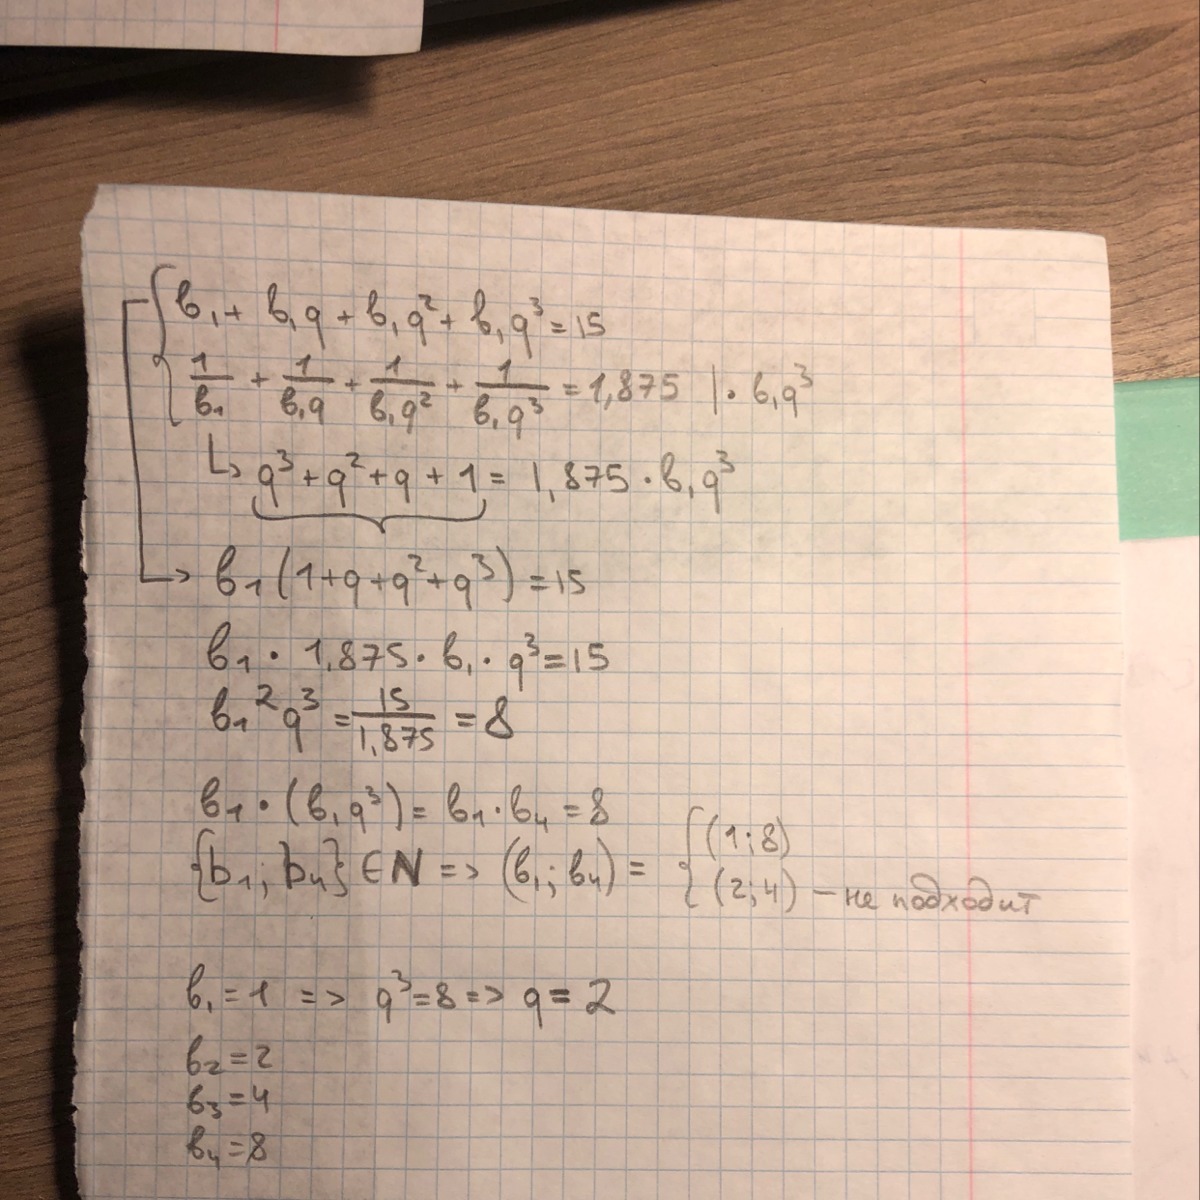 b₁ + b₁q + b₁q² + b₁q³ = 15
1/b₁ + 1/b₁q + 1/b₁q² + 1/b₁q³ = 1,875 | · b₁q³
↳ q³ + q² + q + 1 = 1,875 · b₁q³
→ b₁(1+q+q²+q³) = 15
b₁ · 1,875 · b₁ · q³ = 15
b₁²q³ = 15/1,875 = 8
b₁ · (b₁q³) = b₁ · b₄ = 8
{b₁; b₄} ∈ N => (b₁; b₄) = { (1; 8)
(2; 4) – не подходит
b₁ = 1 => q³ = 8 => q = 2
b₂ = 2
b₃ = 4
b₄ = 8